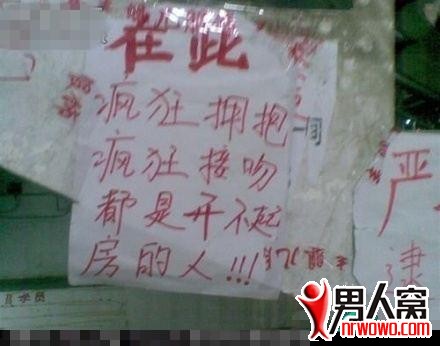 在此
疯狂拥抱
疯狂接吻
都是开不起
房的人!!!
严
男人窝
nrwowo.com